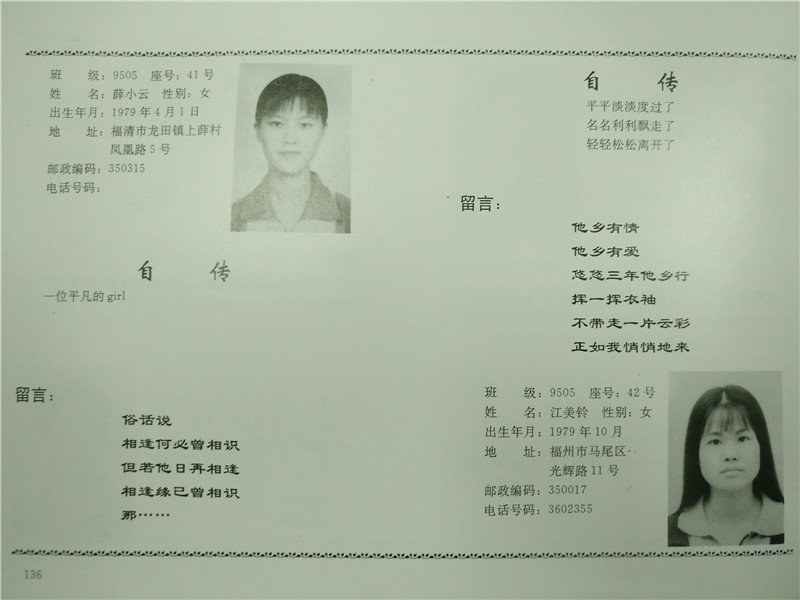 班 级：9505 座号：41 号
姓 名：薛小云 性别：女
出生年月：1979 年 4 月 1 日
地 址：福清市龙田镇上薛村
凤凰路 5 号
邮政编码：350315
电话号码：
自 传
一位平凡的 girl
留言：
俗话说
相逢何必曾相识
但若他日再相逢
相逢缘已曾相识
那……
自 传
平平淡淡度过了
名名利利飘走了
轻轻松松离开了
留言：
他乡有情
他乡有爱
悠悠三年他乡行
挥一挥衣袖
不带走一片云彩
正如我悄悄地来
班 级：9505 座号：42 号
姓 名：江美铃 性别：女
出生年月：1979 年 10 月
地 址：福州市马尾区
光辉路 11 号
邮政编码：350017
电话号码：3602355
136